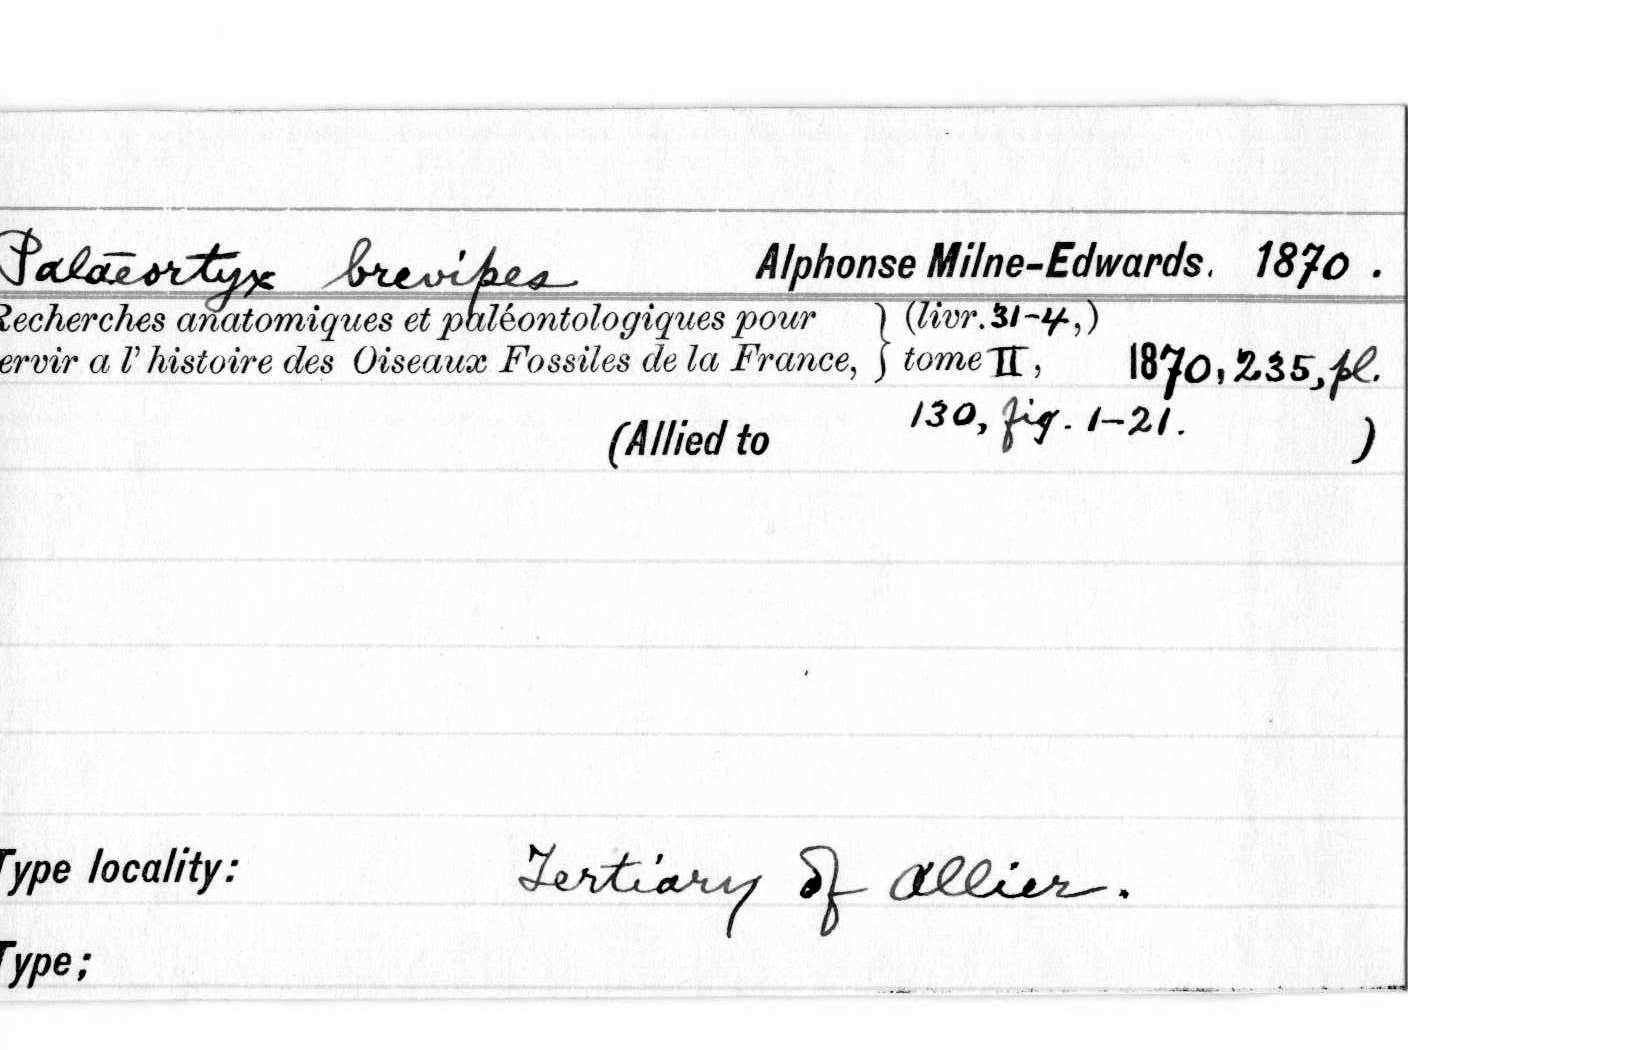 Palaeortyx brevipes Alphonse Milne-Edwards. 1870.
Recherches anatomiques et paléontologiques pour } (livr. 31-4,)
ervir a l'histoire des Oiseaux Fossiles de la France, } tome II, 1870, 235, pl.
130, fig. 1-21.
(Allied to )
Type locality: Tertiary of Allier.
Type;